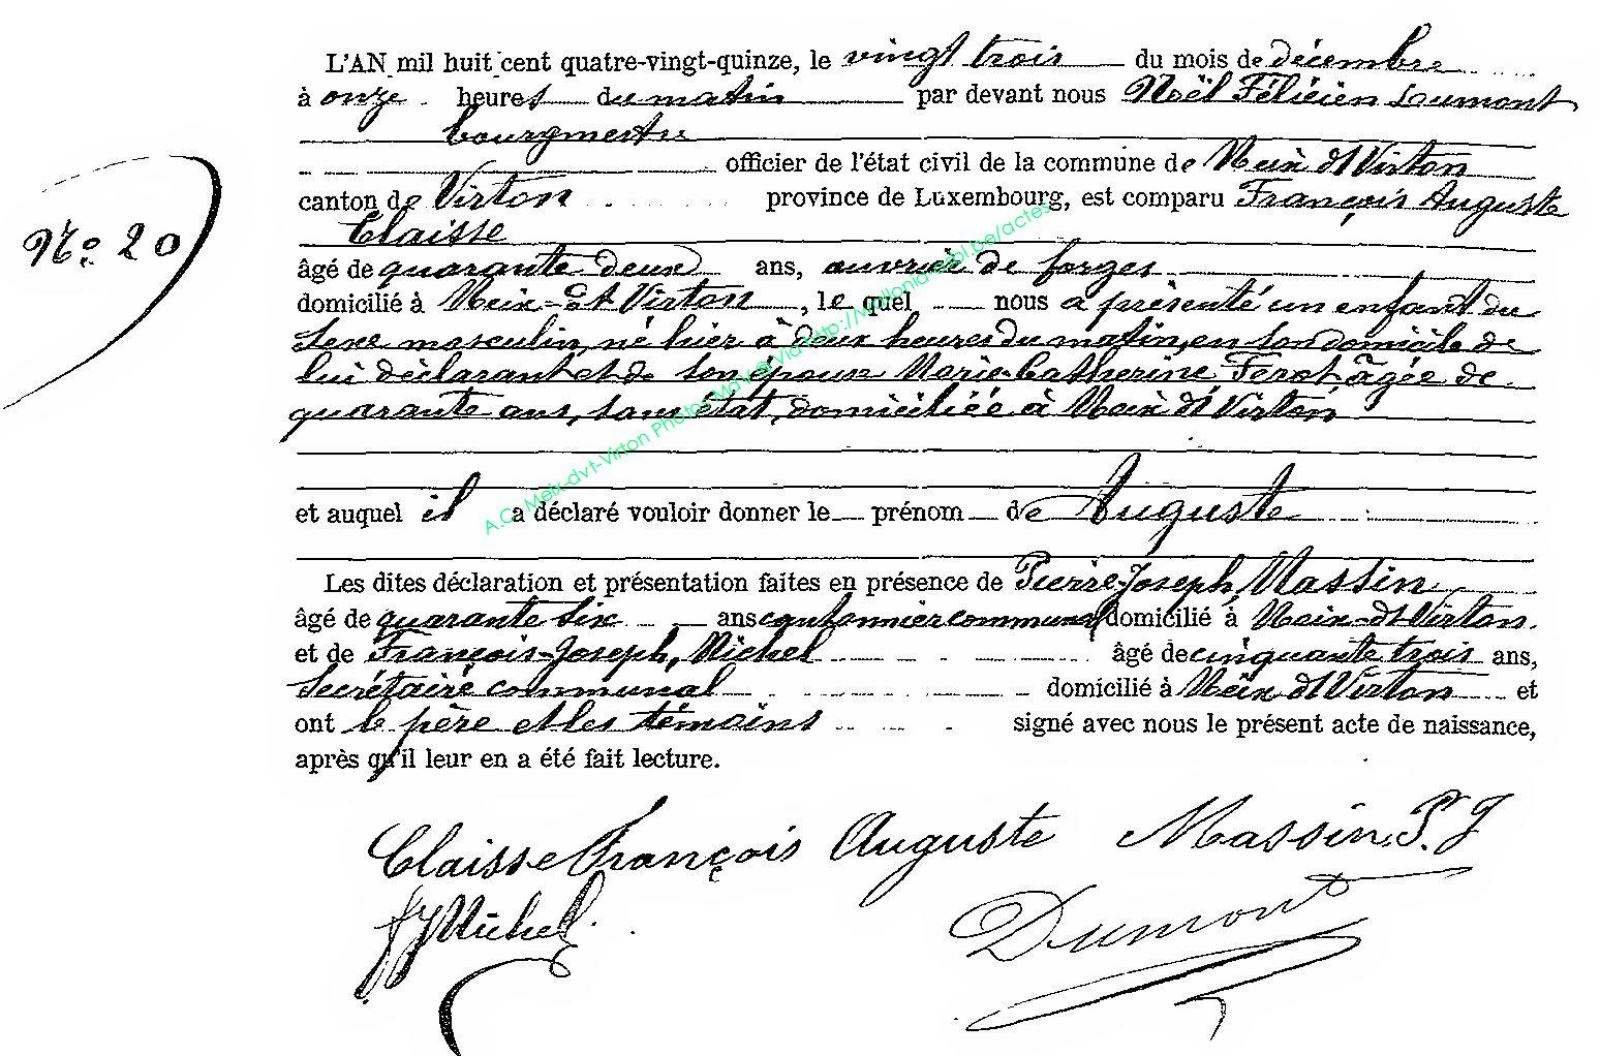 L'AN mil huit cent quatre-vingt-quinze, le vingt trois du mois de décembre
à onze heures du matin par devant nous Noël Félicien Dumont
bourgmestre
officier de l'état civil de la commune de Meix dt Virton
canton de Virton province de Luxembourg, est comparu François Auguste
Claisse
N° 20
âgé de quarante deux ans, ouvrier de forges
domicilié à Meix-dt Virton, le quel nous a présenté un enfant du
sexe masculin, né hier à deux heures du matin, en son domicile de
lui déclarant et de son épouse Marie-Catherine Ferot, âgée de
quarante ans, sans état, domiciliée à Meix dt Virton
et auquel il a déclaré vouloir donner le prénom de Auguste
Les dites déclaration et présentation faites en présence de Pierre-Joseph, Massin
âgé de quarante six ans cantonnier communal domicilié à Meix-dt Virton.
et de François-Joseph, Michel âgé de cinquante trois ans,
Secrétaire communal domicilié à Meix dt Virton et
ont le père et les témoins signé avec nous le présent acte de naissance,
après qu'il leur en a été fait lecture.
Claisse François Auguste Massin P. J
F J Michel
Dumont
A.C. Meix-dvt-Virton Photos